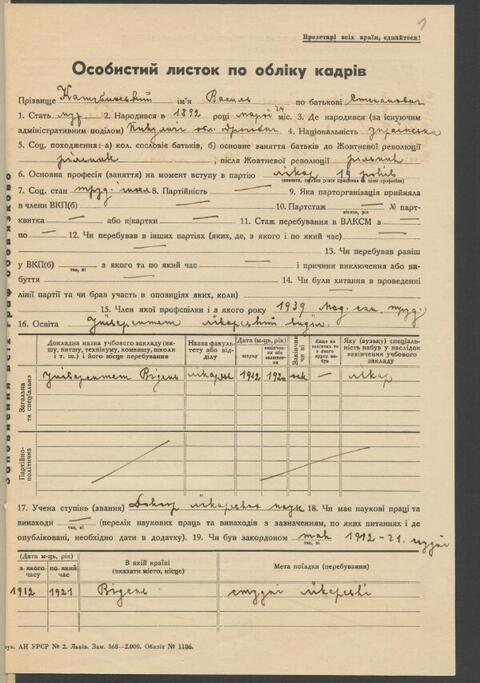 1
Пролетарі всіх країн, єднайтеся!
Особистий листок по обліку кадрів
Прізвище ім'я Василь по батькові Степанович
1. Стать муж 2. Народився в 1892 році марті 24 міс. 3. Де народився (за існуючим
адміністративним поділом) обл Дрогобич 4. Національність Українська
5. Соц. походження: а) кол. сословіє батьків, б) основне заняття батьків до Жовтневої революції
рільник, після Жовтневої революції рільник
6. Основна професія (заняття) на момент вступу в партію лікар 19 років
7. Соц. стан труд. інтел 8. Партійність — 9. Яка парторганізація прийняла
в члени ВКП(б) — 10. Партстаж — № парт-
місяць, рік
квитка — або к/картки — 11. Стаж перебування в ВЛКСМ з —
по — 12. Чи перебував в інших партіях (яких, де, з якого і по який час)
— 13. Чи перебував раніш
у ВКП(б) — з якого та по який час — і причини виключення або ви-
так, ні
буття — 14. Чи були хитання в проведенні
лінії партії та чи брав участь в опозиціях яких, коли) —
15. Член якої профспілки і з якого року 1939 Мед. сан. труд.
16. Освіта Університет лікарський виділ
Докладна назва учбового закладу (ви-
шу, втузу, технікуму, комвишу, школи
і т. д.) і його місце перебування
Назва факуль-
тету або від-
ділу
Дата (м-ць, рік)
вступу
Закінчив
чи ні
Яку (вузьку) спеціаль-
ність набув у наслідок
закінчення учбового
закладу
Загальна
та спеціальна
Університет Відень лікарськ 1912 1920 так — лікар
Партійно-
політична
17. Учена ступінь (звання) Доктор лікарських наук 18. Чи має наукові праці та
винаходи — (перелік наукових праць та винаходів з зазначенням, по яких питаннях і де
так, ні
опубліковані, необхідно дати в додатку). 19. Чи був закордоном так 1912-21. студії
так, ні
Дата (м-ць, рік)
з якого
часу
по який
час
В якій країні
(вказати місто, місце)
Мета поїздки (перебування)
1912 1921 Відень студії лікарські
рук. АН УРСР № 2. Львів. Зам. 568—2.000. Обліт № 1186.